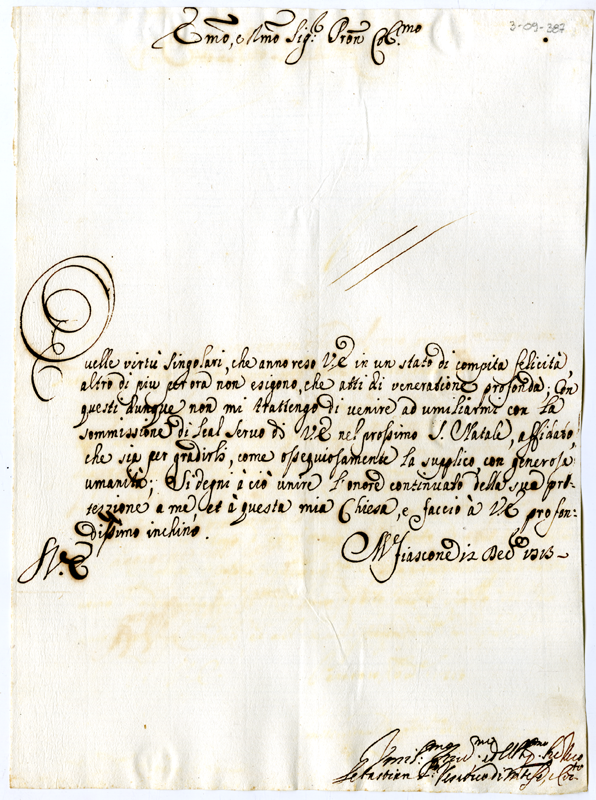 3-09-387
Emo, e Rmo Sig.r Pron Col.mo
Quelle virtù singolari, che anno reso V.E. in un stato di compita felicità,
altro di più per ora non esigono, che atti di veneratione profonda; Con
questi dunque non mi trattengo di venire ad umiliarmi con la
sommissione di leal servo di V.E. nel prossimo S. Natale, affidato,
che sia per gradirli, come ossequiosamente la supplico, con generosa
umanità; Si degni à ciò unire l'onore continuato della sua pro-
tezzione a me, et à questa mia Chiesa, e faccio à V.E. profon-
dissimo inchino.
M.e fiascone 12 Dec.e 1713
V.E.
Umil.mo
Sebastian